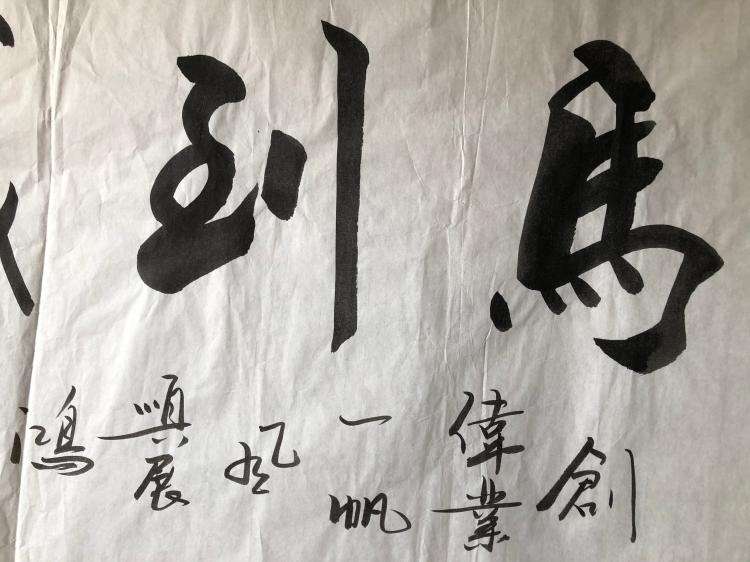 馬到
創偉業一帆風順展鴻